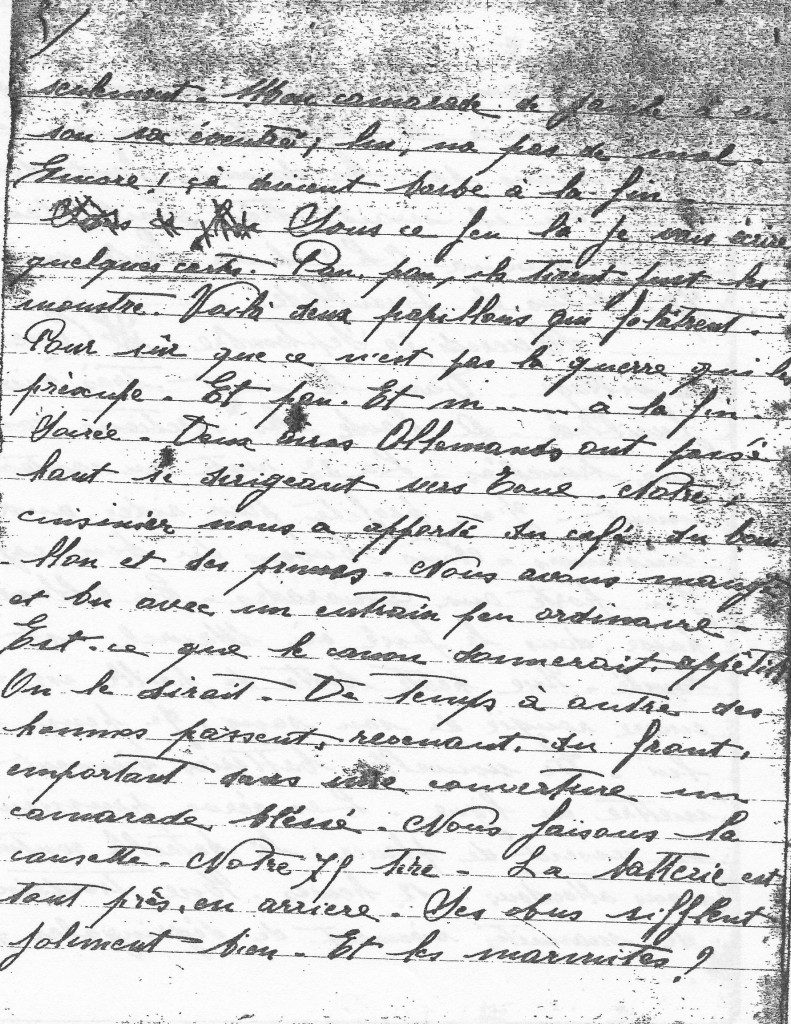 5/
seulement. Mon camarade de gauche a eu
son sac éventré; lui, na pas de mal.
Encore! ça devient barbe à la fin.
Sous ce feu là je vais écrire
quelques cartes. Pan, pan, ils tirent just les
monstre. Voilà deux papillons qui folâtrent.
Pour sûr que ce n'est pas la guerre qui les
préocupe. Et pan. Et m...... à la fin
Soirée. Deux Allemands ont passé
haut se dirigeant vers Toul. Notre
cuisinier nous a apporté du café, du boui
-llon et des prunes. Nous avons mangé
et bu avec un entrain peu ordinaire.
Est-ce que le canon donnerait appétit
On le dirait. De temps à autre des
hommes passent, revenant du front,
emportant dans une couverture un
camarade bléssé. Nous faisons la
causette. Notre 75 tire. La batterie est
tout près, en arriere. Ses obus sifflent
joliment bien. Et les marmites?